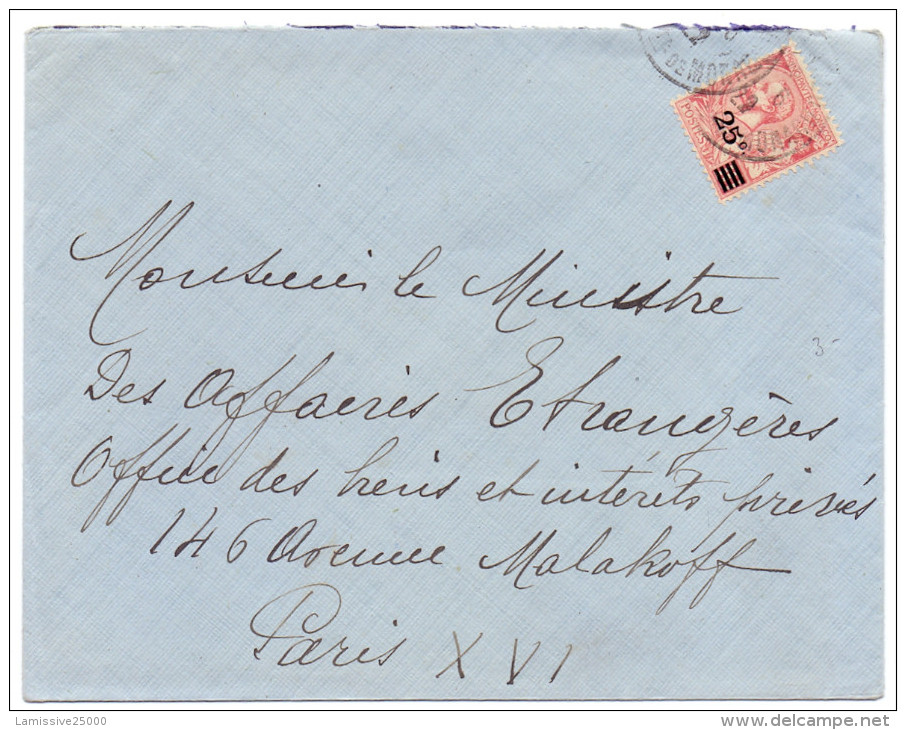 25 c.
Monsieur le Ministre
Des Affaires Etrangères
Office des biens et intérêts privés
146 Avenue Malakoff
Paris XVI
3-
Lamissive25000
www.delcampe.net